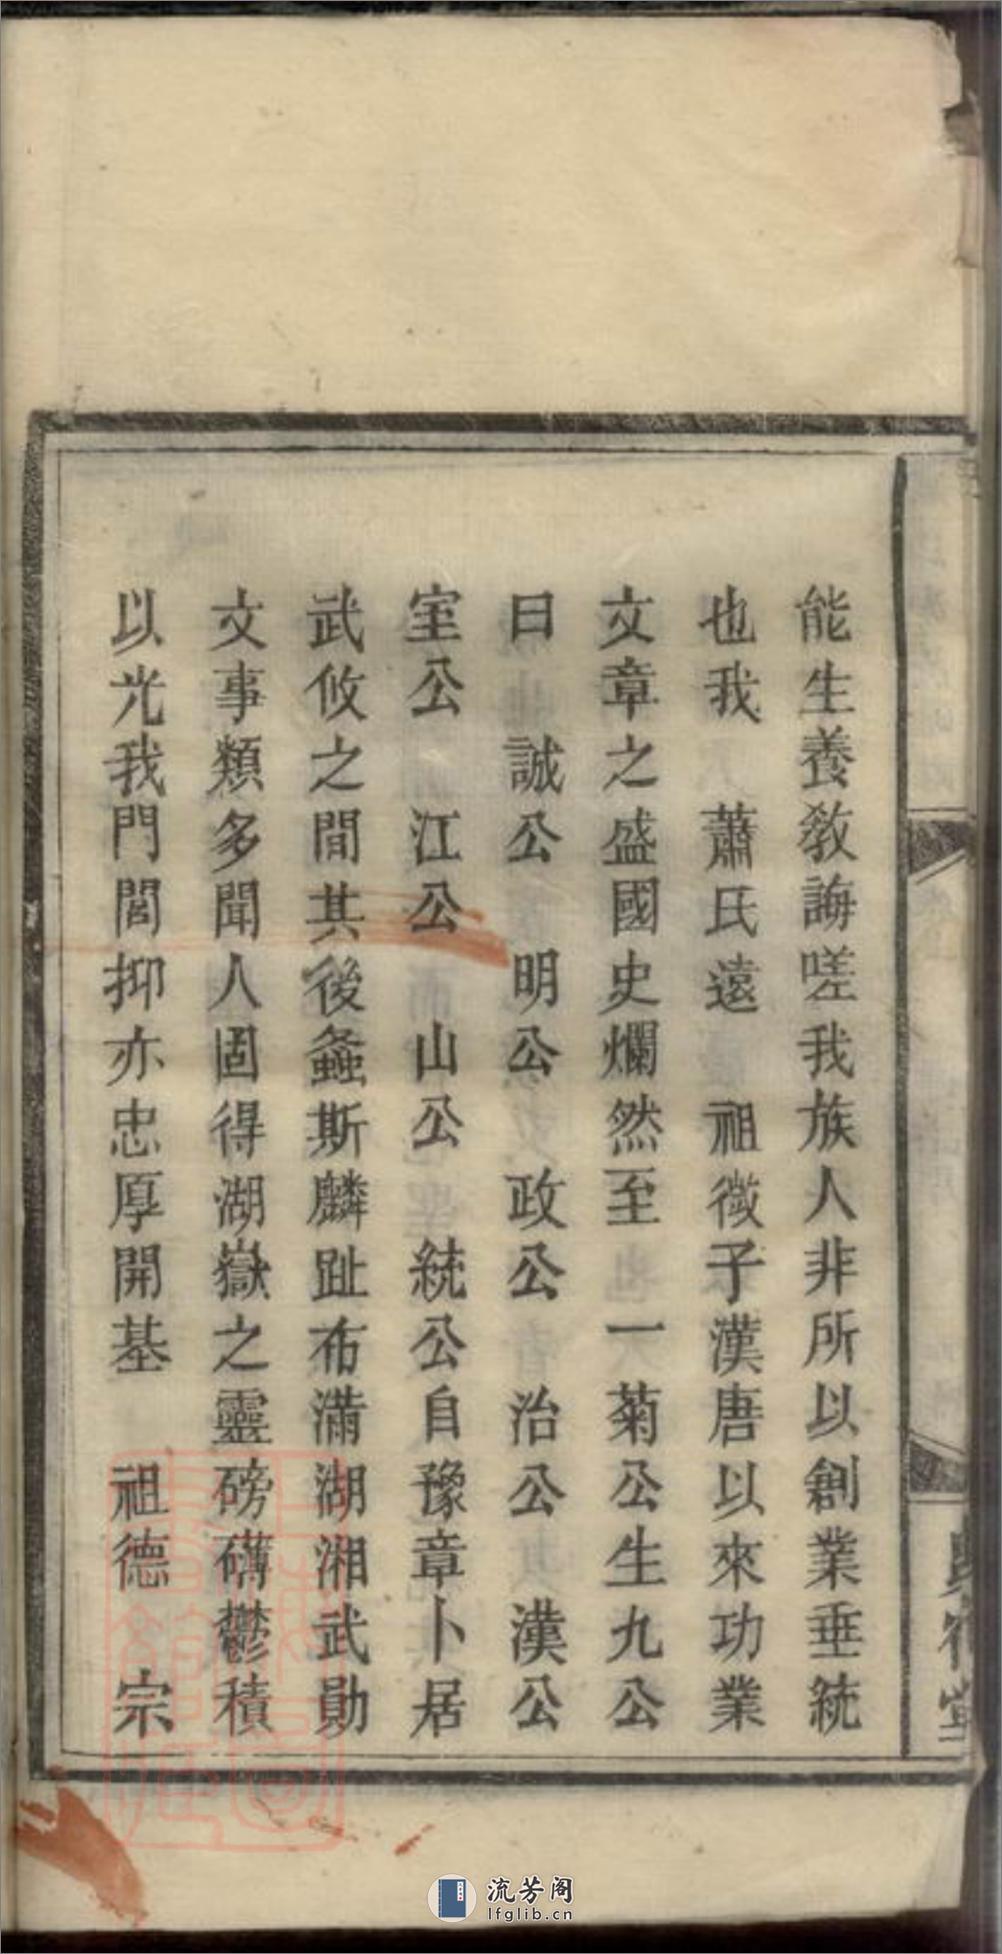 能生養敎誨嗟我族人非所以創業垂統
也我　蕭氏遠　祖微子漢唐以來功業
文章之盛國史爛然至　一菊公生九公
曰　誠公　明公　政公　治公　漢公
室公　江公　山公　統公自豫章卜居
武攸之間其後螽斯麟趾布滿湖湘武勛
文事類多聞人固得湖嶽之靈磅礡鬱積
以光我門閭抑亦忠厚開基　祖德　宗
流芳阁
lfglib.cn